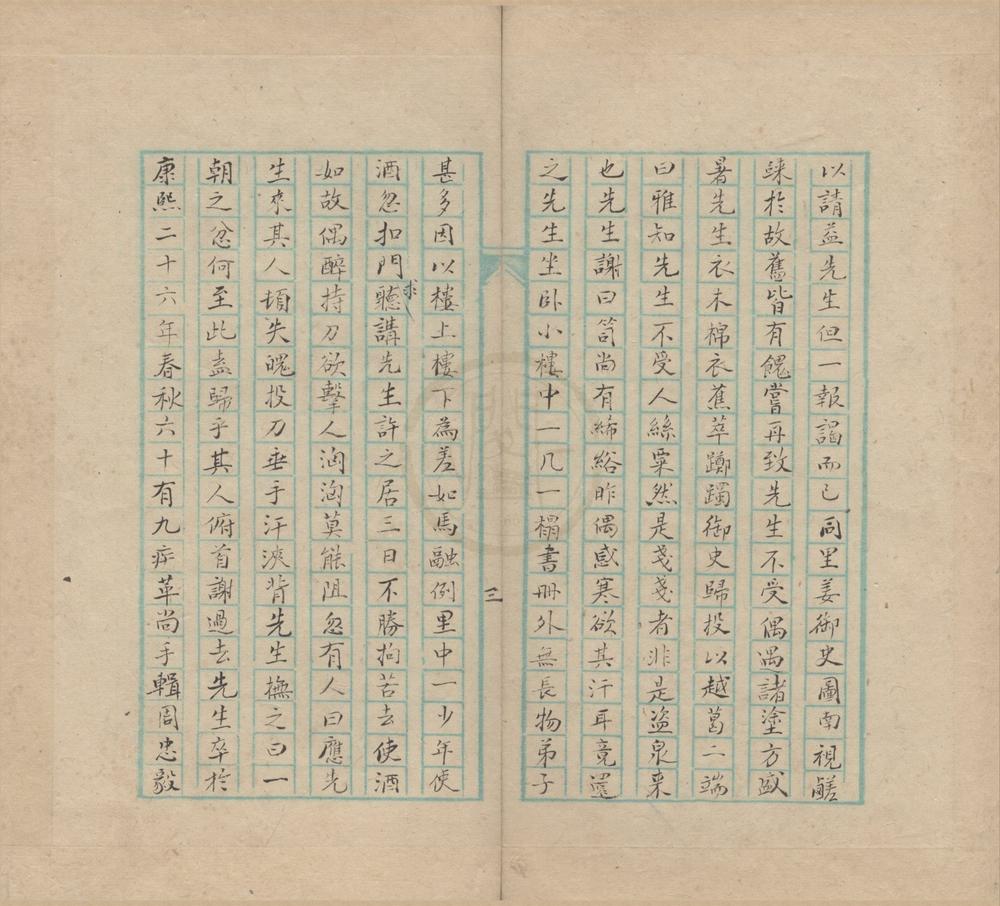 以請益先生但一報謁而已同里姜御史圖南視鹺
歸於故舊皆有餽嘗再致先生不受偶遇諸塗方盛
暑先生衣木棉衣蕉萃躑躅御史歸投以越葛二端
曰雅知先生不受人絲粟然是戔戔者非是盜泉来
也先生謝曰笥尚有絺綌昨偶感寒欲其汗耳竟還
之先生坐卧小樓中一几一榻書冊外無長物弟子
三
甚多因以樓上樓下為差如馬融例里中一少年使
酒忽扣門求聽講先生許之居三日不勝拘苦去使酒
如故偶醉持刀欲擊人洶洶莫能阻忽有人曰應先
生來其人頓失魄投刀垂手汗浹背先生撫之曰一
朝之忿何至此盍歸乎其人俯首謝過去先生卒於
康熙二十六年春秋六十有九疾革尚手輯周忠毅